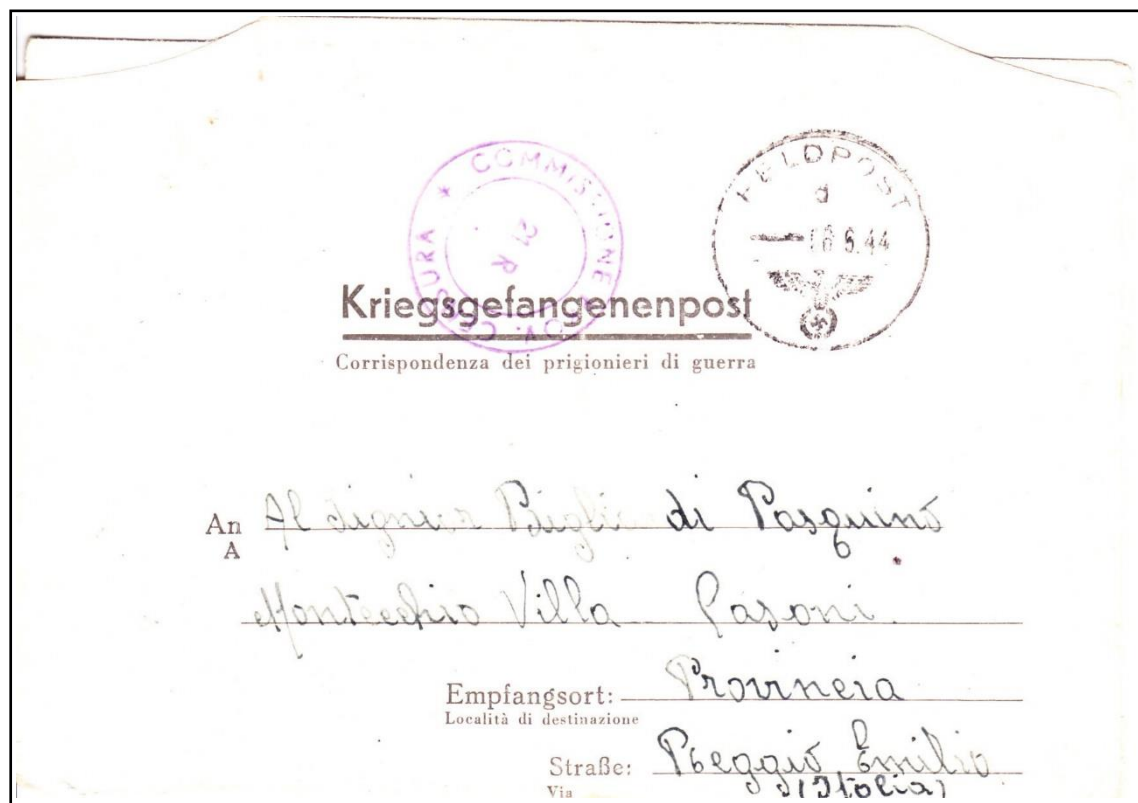 COMMISSIONE PROV. CENSURA *
21 R
FELDPOST
d
6.44
Kriegsgefangenenpost
Corrispondenza dei prigionieri di guerra
An Al signior di Pasquino
A
Montecchio Villa
Empfangsort: Provincia
Località di destinazione
Straße: Reggio Emilio
Via (Italia)